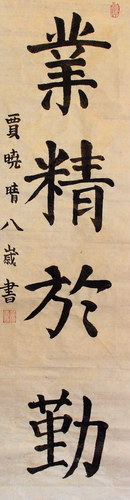 業精於勤
賈曉晴八歲書